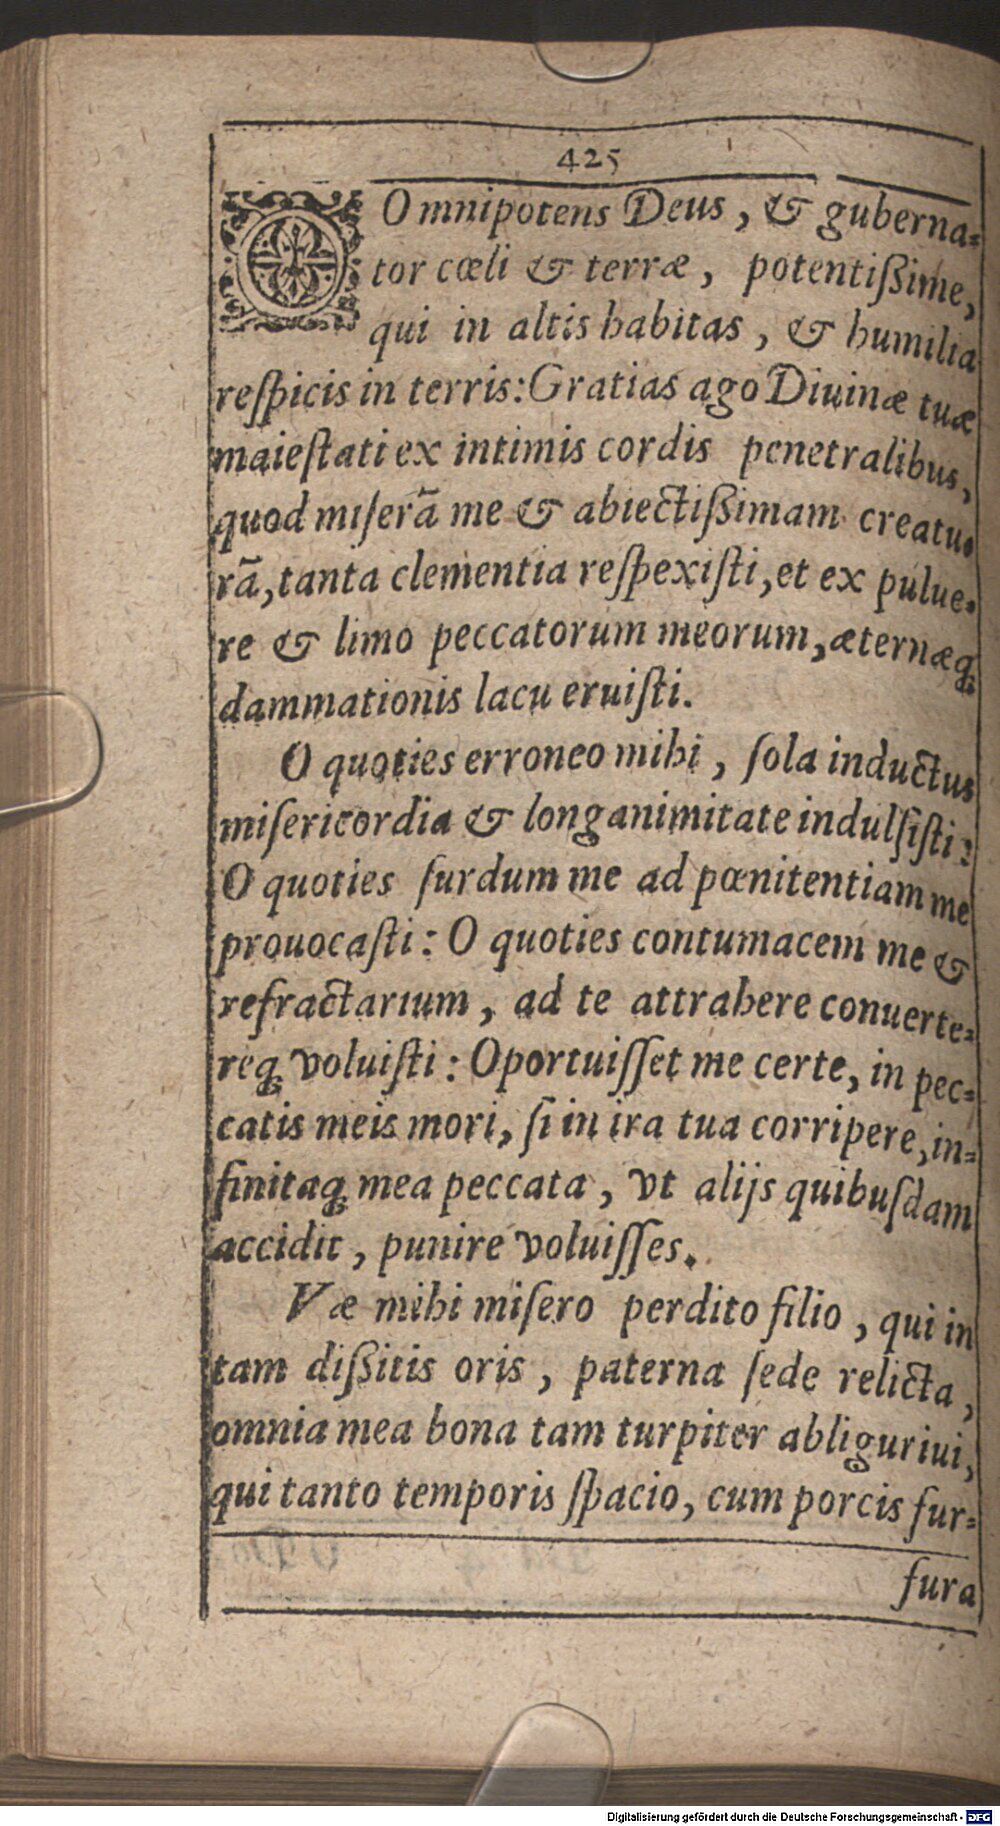 425
O Omnipotens Deus, & guberna=
tor cœli & terræ, potentißime,
qui in altis habitas, & humilia
reſpicis in terris: Gratias ago Diuinæ tuæ
maieſtati ex intimis cordis penetralibus,
quod miſerā me & abiectißimam creatu-
rā, tanta clementia reſpexiſti, et ex pulue-
re & limo peccatorum meorum, æternæq;
dammationis lacu eruiſti.
O quoties erroneo mihi, ſola inductus
miſericordia & longanimitate indulſiſti?
O quoties ſurdum me ad pœnitentiam me
prouocaſti: O quoties contumacem me &
refractarium, ad te attrahere conuerte=
req; voluiſti: Oportuiſſet me certe, in pec=
catis meis mori, ſi in ira tua corripere, in=
finitaq; mea peccata, vt alijs quibuſdam
accidit, punire voluiſſes.
Væ mihi miſero perdito filio, qui in
tam dißitis oris, paterna ſede relicta,
omnia mea bona tam turpiter abliguriui,
qui tanto temporis ſpacio, cum porcis fur=
fura
Digitalisierung gefördert durch die Deutsche Forschungsgemeinschaft - DFG